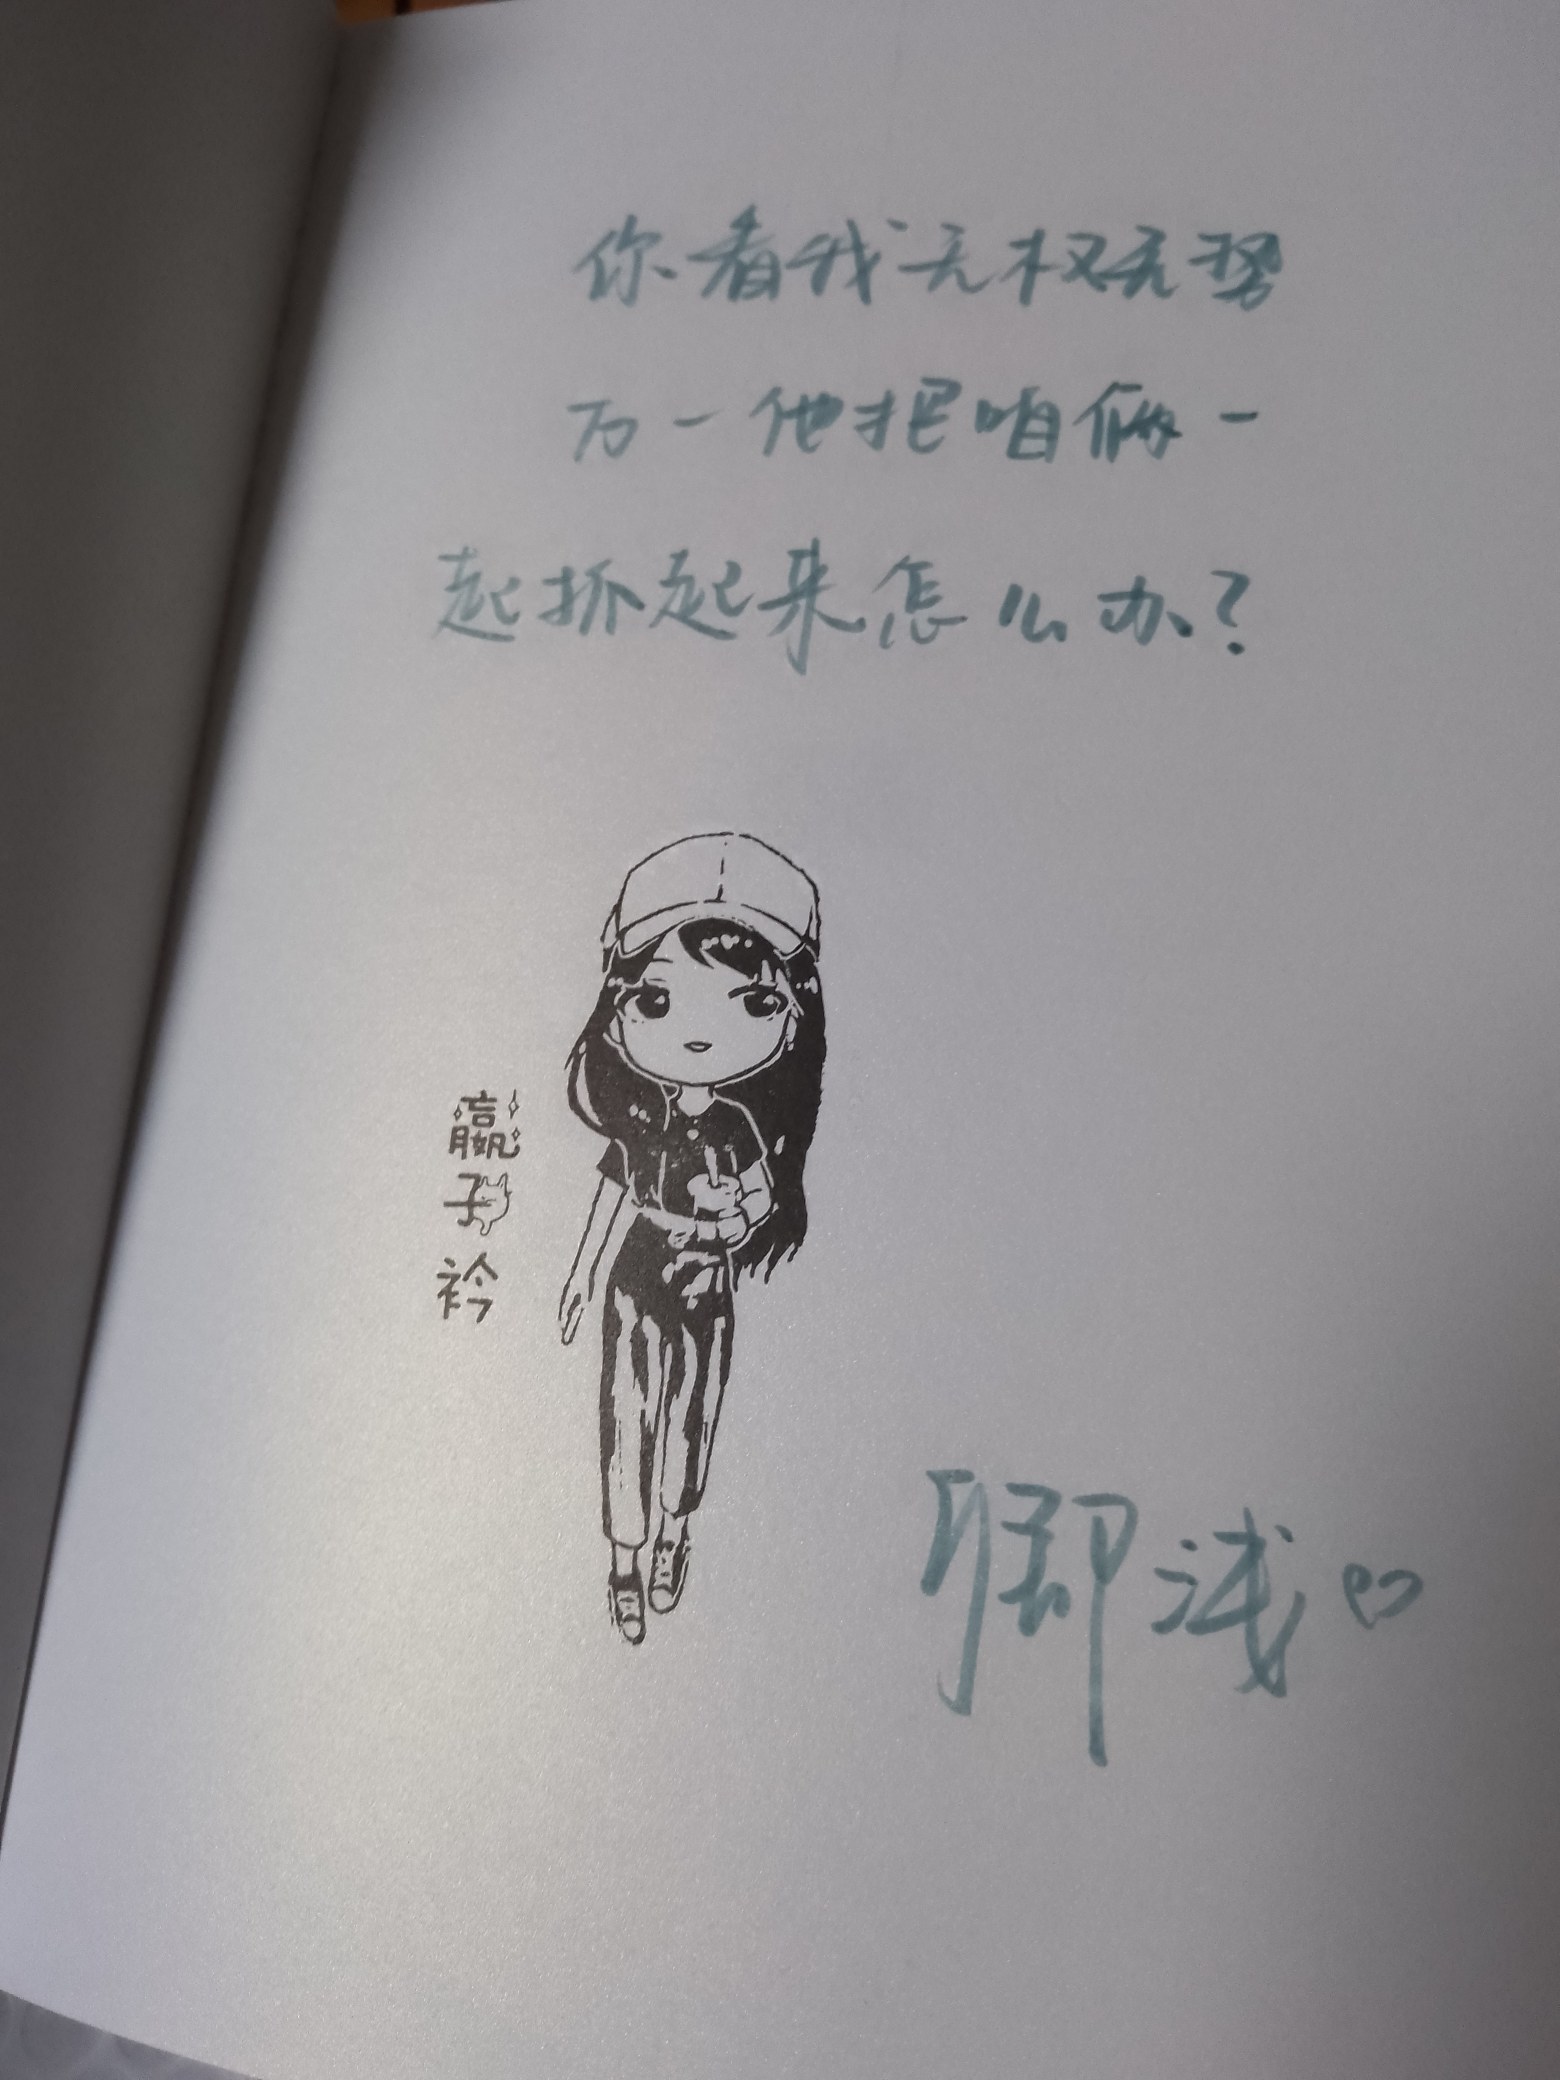 你看我无权无势
万一他把咱俩一
起抓起来怎么办？
嬴
子
衿
卿浅